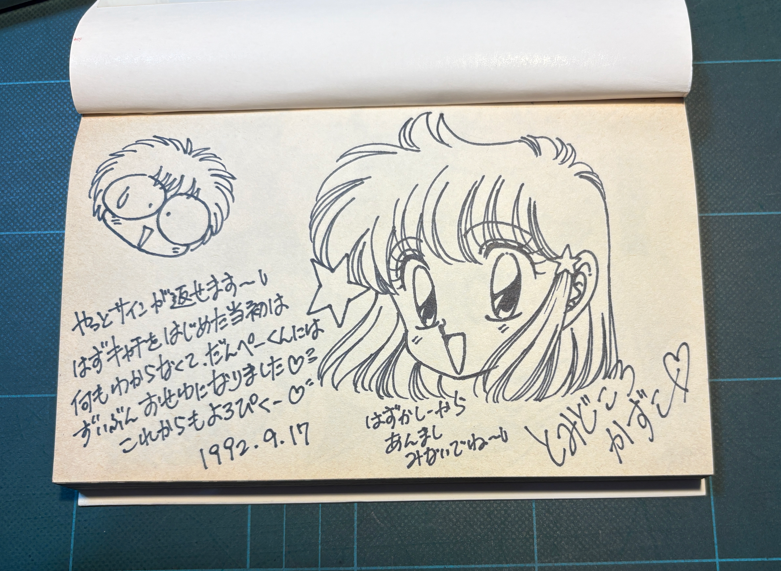 やっとサインが返せます〜
はずキャチをはじめた当初は
何もわからなくて、だんぺーくんには
ずいぶんおせわになりました♡
これからもよろぴくー♡
1992.9.17
はずかしーから
あんまし
みないでね〜
とみどころ
かずこ♡